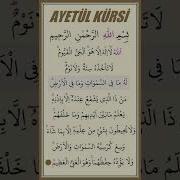 AYETÜL KÜRSİ
بِسْمِ اللهِ الرَّحْمٰنِ الرَّحِيمِ
اَللهُ لَا اِلٰهَ اِلَّا هُوَ الْحَيُّ الْقَيُّومُ
لَا تَأْخُذُهُ سِنَةٌ وَلَا نَوْمٌ
لَهُ مَا فِي السَّمٰوَاتِ وَمَا فِي الْاَرْضِ
مَنْ ذَا الَّذِي يَشْفَعُ عِنْدَهُ اِلَّا بِاِذْنِهِ
يَعْلَمُ مَا بَيْنَ اَيْدِيهِمْ وَمَا خَلْفَهُمْ
وَلَا يُحِيطُونَ بِشَيْءٍ مِنْ عِلْمِهِ اِلَّا بِمَا شَاءَ
وَسِعَ كُرْسِيُّهُ السَّمٰوَاتِ وَالْاَرْضَ
وَلَا يَؤُدُهُ حِفْظُهُمَا وَهُوَ الْعَلِيُّ الْعَظِيمُ